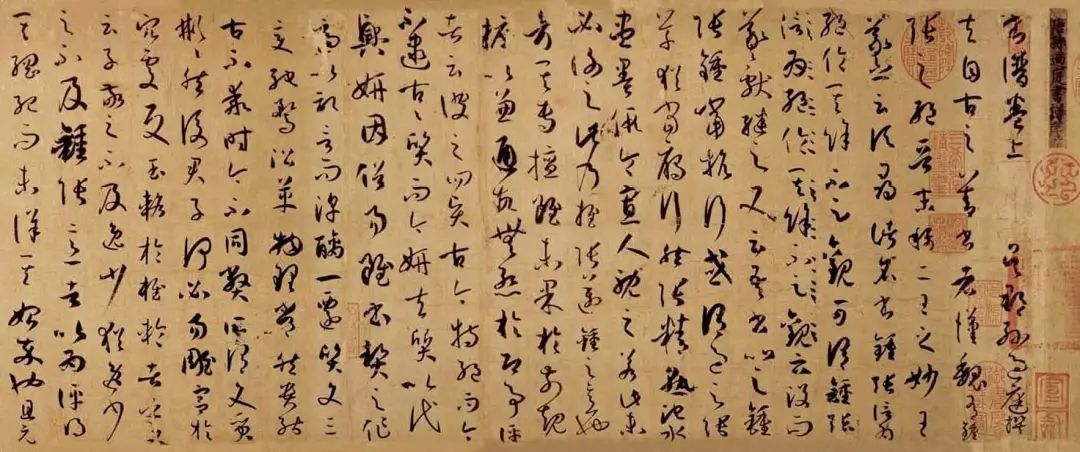 書譜卷上 吳郡孫過庭撰
夫自古之善書者漢魏有鍾
張之絕晉末稱二王之妙王
羲之云頃尋諸名書鍾張信為
絕倫其餘不足觀可謂鍾張
信為絕倫其餘不足觀云沒而
羲獻繼之又云吾書比之鍾
張鍾當抗行或謂過之張
草猶當鴈行然張精熟池水
盡墨假令寡人耽之若此未
必謝之此乃推張邁鍾之意也
考其專擅雖未果於前規
摭以兼通故無慚於即事評
者云彼之四賢古今特絕而今
不逮古古質而今妍夫質以代
興妍因俗易雖書契之作
適以記言而淳醨一遷質文三
變馳騖沿革物理常然貴能
古不乖時今不同弊所謂文質
彬彬然後君子何必易雕宮於
穴處反玉輅於椎輪者乎又
云子敬之不及逸少猶逸少
之不及鍾張意者以為評得
其綱紀而未詳其始卒也且元